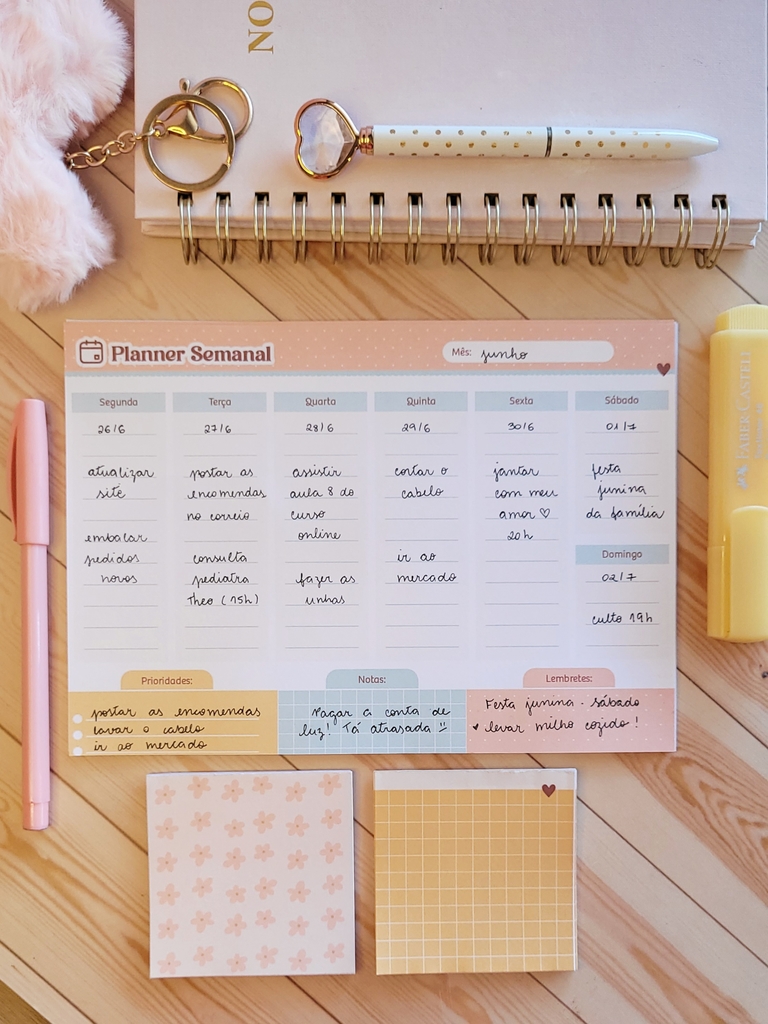 NO
Planner Semanal
Mês: junho
Segunda
26/6
atualizar
site
embalar
pedidos
novos
Terça
27/6
postar as
encomendas
no correio
consulta
pediatra
Theo (15h)
Quarta
28/6
assistir
aula 8 do
curso
online
fazer as
unhas
Quinta
29/6
cortar o
cabelo
ir ao
mercado
Sexta
30/6
jantar
com meu
amor ♡
20h
Sábado
01/7
festa
junina
da família
Domingo
02/7
culto 19h
Prioridades:
postar as encomendas
lavar o cabelo
ir ao mercado
Notas:
Pagar a conta de
luz! Tá atrasada
Lembretes:
Festa junina - sábado
levar milho cozido!
FABER-CASTELL